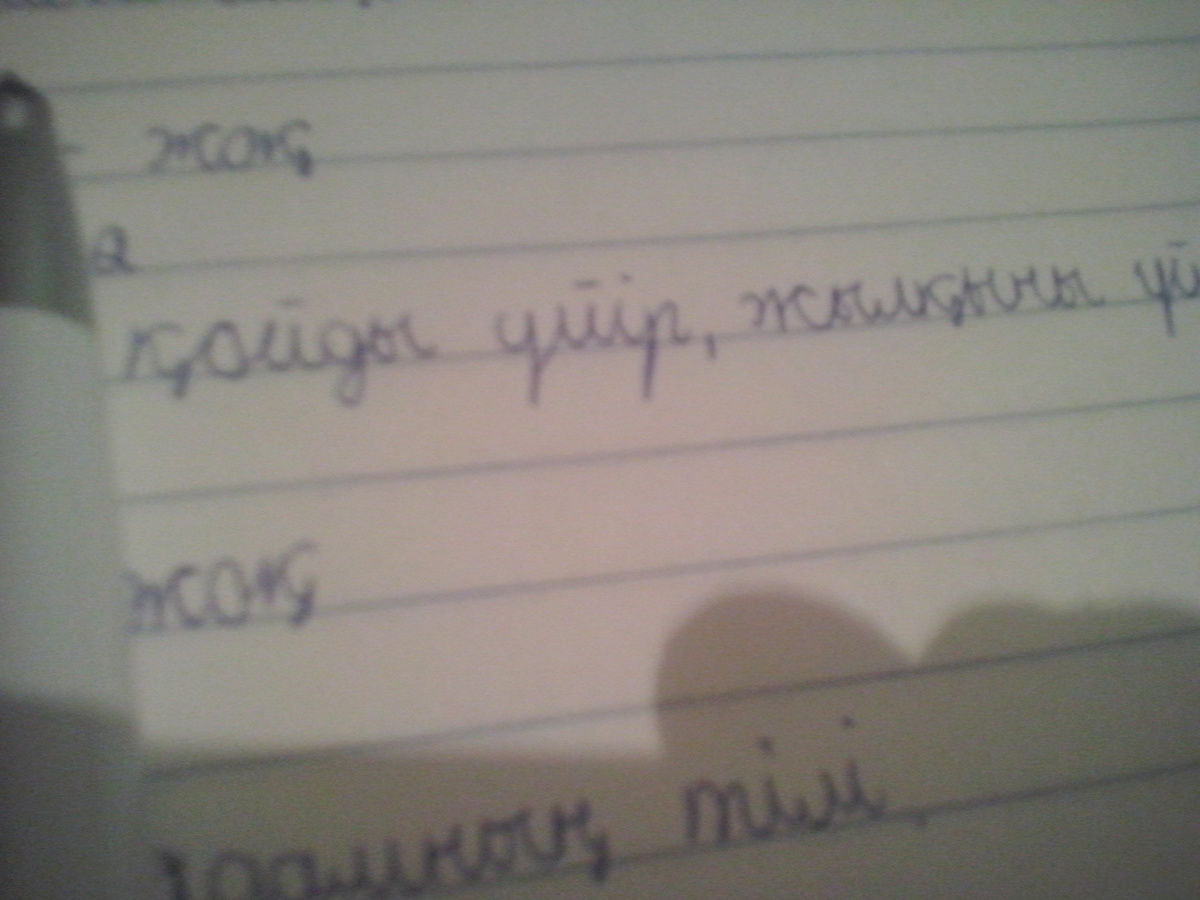 - жоқ
а
қойды үйір, жылқыны
жоқ
тілі